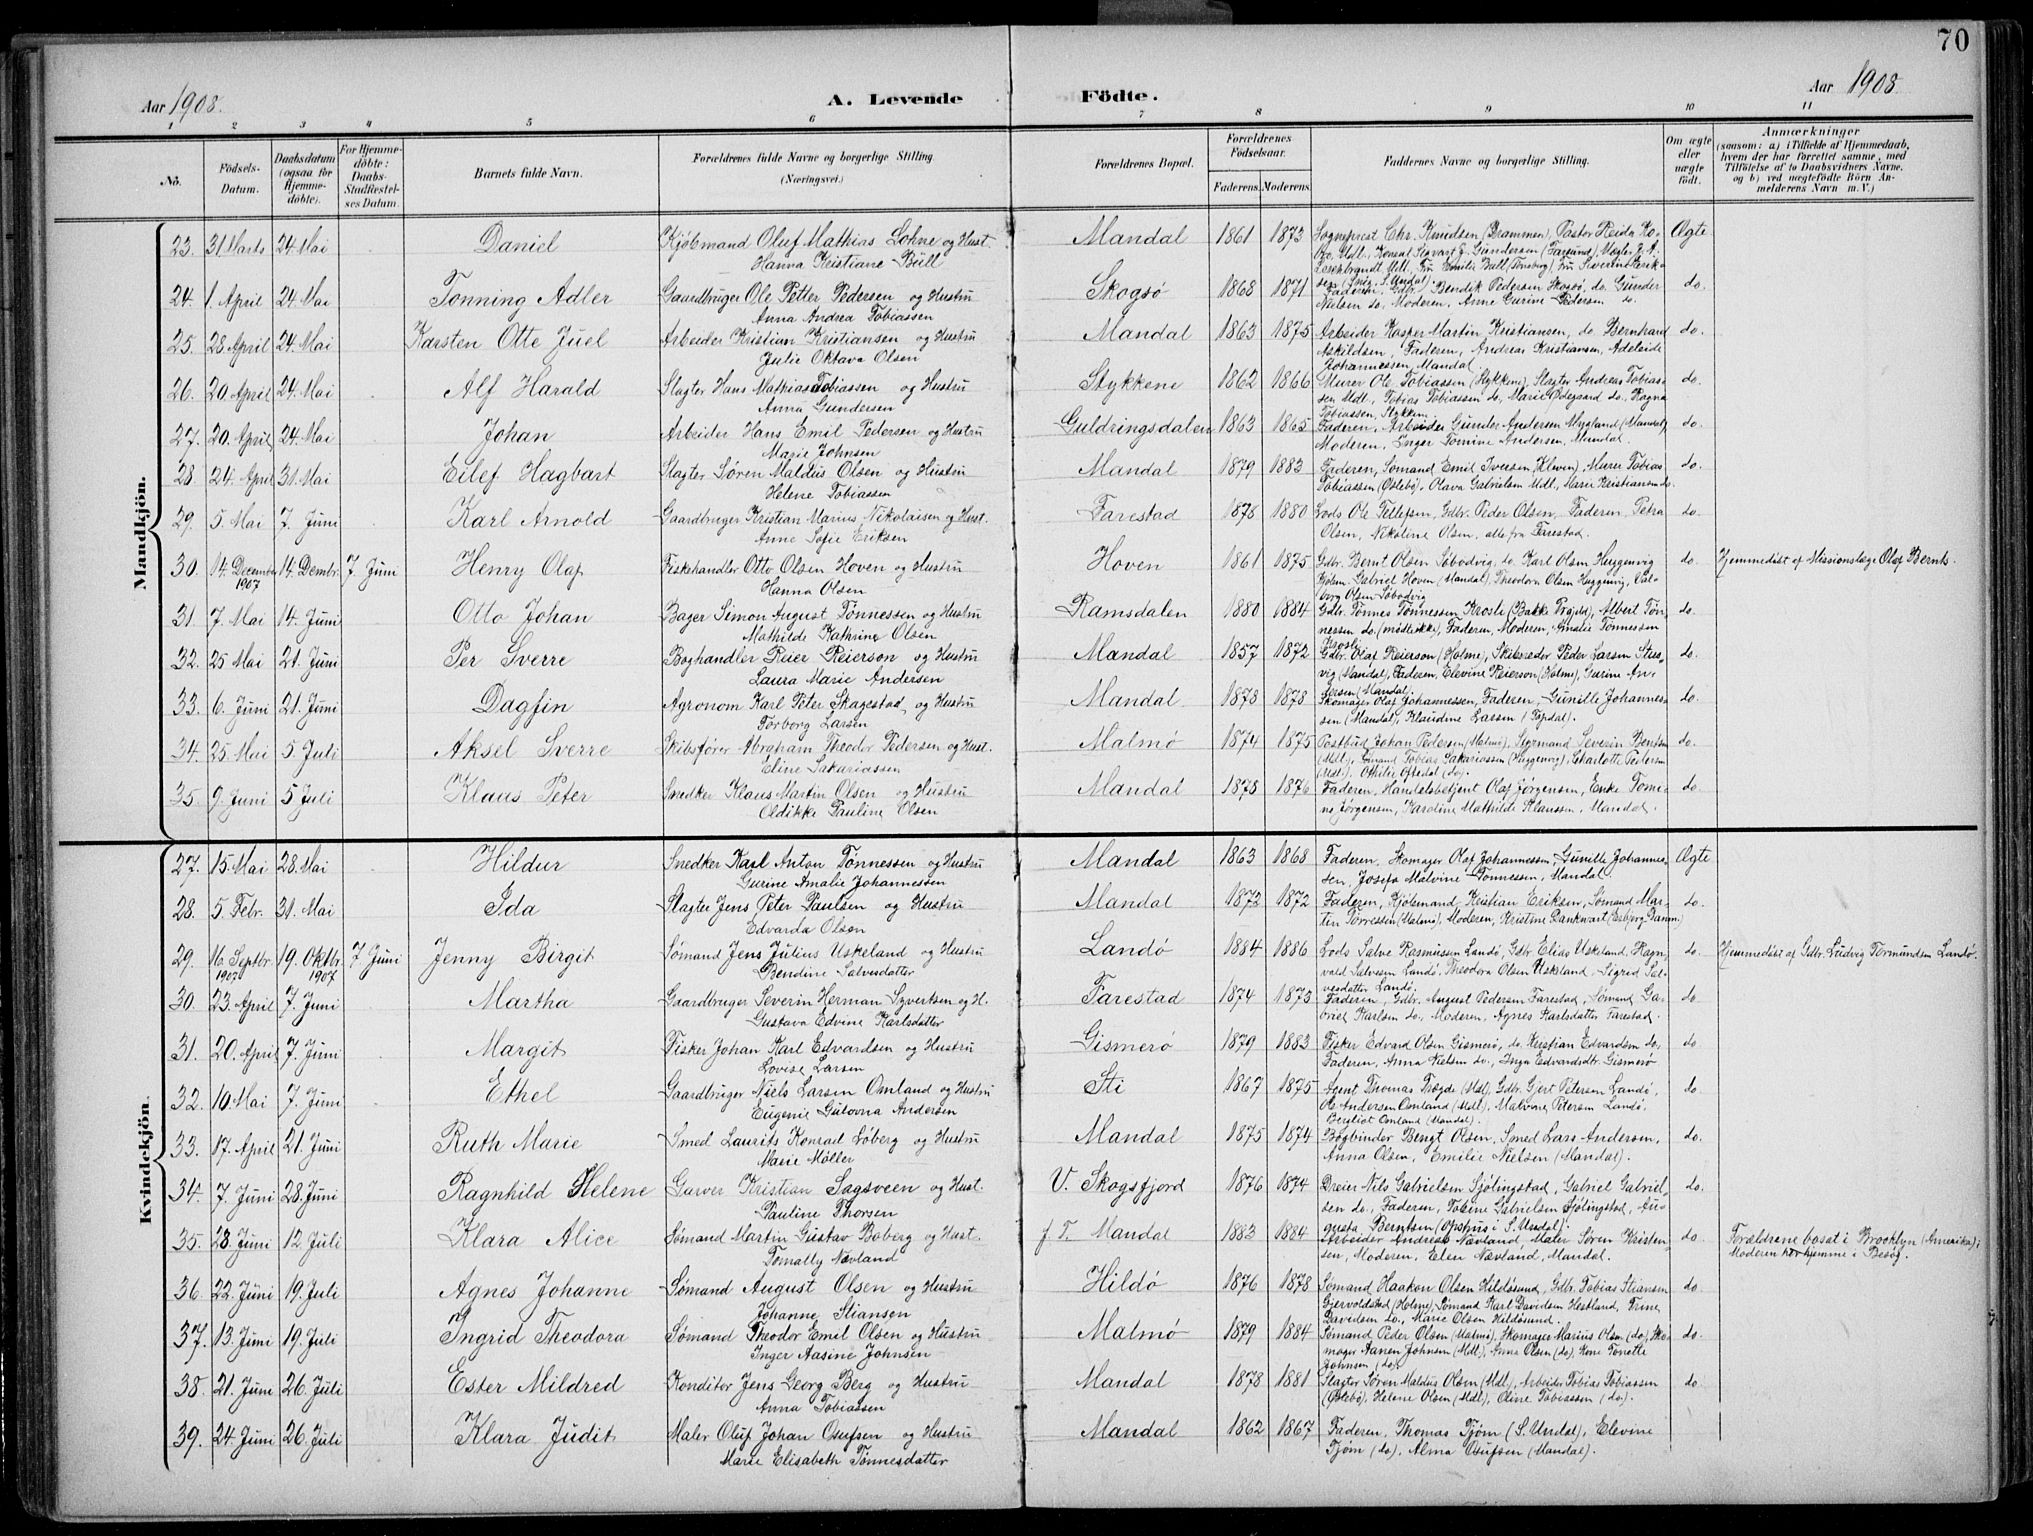 70
Aar 1908.
A. Levende
Födte.
Aar 1908
1 2 3 4 5 6 7 8 9 10 11
No.
Födsels-Datum.
Daabsdatum (ogsaa for Hjemmedöbte).
For Hjemmedöbte: Daabs-Stadfæstelses Datum.
Barnets fulde Navn.
Forældrenes fulde Navne og borgerlige Stilling.
(Næringsvei.)
Forældrenes Bopæl.
Forældrenes Födselsaar.
Faderens. Moderens.
Faddernes Navne og borgerlige Stilling.
Om ægte eller uægte födt.
Anmærkninger
(saasom: a) i Tilfælde af Hjemmedaab, hvem der har forrettet samme, med Tilföielse af to Daabsvidners Navne, og b) ved uægtefödte Börn Anmelderens Navn m. V.)
Mandkjön.
23. 31 Marts 24. Mai Daniel Kjöbmand Oluf Mathias Lohne og Hust. Mandal 1861 1873 Sogneprest Chr. Knudsen (Drammen), Pastor Ægte
Hanna Kristiane Bull
24. 1. April 24. Mai Tonning Adler Gaardbruger Ole Petter Pedersen og Hustru Skogsø 1868 1871 Faderen, Gdbr. Bendik Pedersen Skogsø, do. Gunder do.
Anna Andrea Tobiassen Nielsen do. Moderen, Anne Gurine Pedersen do.
25. 28 April 24. Mai Karsten Otto Juel Arbeider Kristian Kristiansen og Hustru Mandal 1863 1875 Arbeider Kasper Martin Kristiansen, do. Bernhard do.
Julie Oktava Olsen Askildsen, Faderen, Andreas Kristiansen, Adeleide
Johannessen, Mandal.
26. 20 April 24. Mai Alf Harald Slagter Hans Mathias Tobiassen og Hustru Stykkene 1862 1866 Murer Ole Tobiassen (Stykkene), Slagter Andreas Tobias- do.
Anna Gundersen sen Mdl., Tobias Tobiassen do, Marie Ødegaard do. Ragna
Tobiassen, Stykkene
27. 20. April 24. Mai Johan Arbeider Hans Emil Pedersen og Hustru Guldringsdalen 1863 1865 Faderen, Arbeider Gunder Andersen Mygland (Mandal), do.
Marie Johnsen Moderen, Inger Tomine Andersen, Mandal.
28. 24. April 31. Mai Eilef Hagbart Slagter Søren Maldus Olsen og Hustru Mandal 1879 1883 Faderen, Sömand Emil Iversen (Kleven), Murer Tobias do.
Helene Tobiassen Tobiassen (Østebø), Olava Gabrielsen Mdl, Marie Kristiansen do.
29. 5. Mai 7. Juni Karl Arnold Gaardbruger Kristian Marius Nikolaisen og Hust. Farestad 1878 1880 Lods Ole Tellefsen, Gdbr. Peder Olsen, Faderen, Petra do.
Anne Sofie Eriksen Olsen, Nikoline Olsen, alle fra Farestad.
30. 14. December 1907 14. Dembr. 7. Juni Henry Olaf Fiskehandler Otto Olsen Hoven og Hustru Hoven 1861 1875 Gdbr. Bernt Olsen , do. Karl Olsen Heggenvig do Hjemmedøbt af Missionslæge Olaf Bernts.
Hanna Olsen Kjøbm. Gabriel Hoven (Mandal), Theodora Olsen Heggenvig, Val-
borg Olsen
31. 7. Mai 14. Juni Otto Johan Bager Simon August Tønnessen og Hustru Ramsdalen 1880 1884 Gdbr. Tönnes Tönnessen Krosle (Bakke Prgjld), Albert Tøn- do.
Mathilde Kathrine Olsen nessen do. (mødte ikke), Faderen, Moderen, Amalie Tønnessen
Krosle
32. 25 Mai 21. Juni Per Sverre Boghandler Reier Reierson og Hustru Mandal 1857 1872 Gdbr. Olaf Reierson (Holme), Skibsreder Peder Larsen Stus- do.
Laura Marie Andersen vig (Mandal), Faderen, Elevine Reierson (Holme), Gurine An-
dersen (Mandal).
33. 6. Juni 21. Juni Dagfin Agronom Karl Peter Skagestad og Hustru Mandal 1878 1878 Skomager Olaf Johannessen, Faderen, Gunille Johannes- do.
Torborg Larsen sen (Mandal), Klaudine Larsen (Topdal).
34. 25 Mai 5. Juli Aksel Sverre Skibsfører Abraham Theodor Pedersen og Hust. Malmø 1874 1875 Postbud Johan Pedersen (Malmø), Styrmand Severin Bentsen do.
Eline Sakariassen (Mdl), Tobias Sakariassen (Heggenvig), Charlotte Pedersen
(Mdl). Othilie Oftedal (do).
35. 9. Juni 5 Juli Klaus Peter Snedker Klaus Martin Olsen og Hustru Mandal 1878 1876 Faderen, Handelsbetjent Olaf Jørgensen, Enke Tomi- do.
Oldikke Pauline Olsen ne Jørgensen, Karoline Mathilde Klaussen, Mandal.
Kvindekjön.
27. 15. Mai 28. Mai Hildur Snedker Karl Anton Tønnessen og Hustru Mandal 1863 1868 Faderen, Skomager Olaf Johannessen, Gunille Johannes- Ægte
Gurine Amalie Johannessen sen, Josefa Malvine Tønnessen, Mandal.
28. 5. Febr. 31. Mai Ida Slagter Jens Peter Paulsen og Hustru Mandal 1873 1872 Faderen, Kjøbmand Kristian Eriksen, Sømand Mar- do.
Edvarda Olsen tin Torressen (Malmö), Moderen, Kristine Dankwart (Esbjerg Danm.)
29. 16. Septbr. 1907 19. Oktbr. 1907 7 Juni Jenny Birgit Sømand Jens Julius Uskeland og Hustru Landø 1884 1886 Lods Salve Rasmussen Landø, Gdbr. Elias Uskeland, Ragn- do. Hjemmedøbt af Gdbr. Ludvig Tormundsen Landø.
Bendine Salvesdatter vald Salvesen Landø, Theodora Olsen Uskeland, Sigrid Sal-
vesdatter Landø.
30. 23 April 7. Juni Martha Gaardbruger Severin Herman Syvertsen og H. Farestad 1874 1873 Faderen, Gdbr. August Pedersen Farestad, Sømand Ga- do
Gustava Edvine Karlsdatter briel Karlsen do., Moderen, Agnes Karlsdatter Farestad.
31. 20. April 7. Juni Margit Fisker Johan Karl Edvardsen og Hustru Gismerø 1879 1883 Fisker Edvard Olsen Gismerø, do. Kristian Edvardsen do. do
Lovise Larsen Faderen, Anna Nielsen do., Inga Edvardsdtr. Gismerø
32. 10 Mai 7. Juni Ethel Gaardbruger Niels Larsen Omland og Hustru Sti 1867 1875 Agent Thomas Trægde (Mdl), Gdbr. Gjert Petersen Landø, do
Eugenie Gulovna Andersen Ole Andersen Omland (Mdl), Malvine Petersen Landø,
Bergliot Omland (Mandal).
33. 17. April 21. Juni Ruth Marie Smed Laurits Konrad Løberg og Hustru Mandal 1875 1874 Bogbinder Bengt Olsen, Smed Lars Andersen, do.
Marie Møller Anna Olsen, Emilie Nielsen (Mandal).
34. 7. Juni 28. Juni Ragnhild Helene Garver Kristian Sagsveen og Hust. V. Skogsfjord 1876 1874 Dreier Nils Gabrielsen Sjölingstad, Gabriel Gabriel- do.
Pauline Thorsen sen do., Faderen, Tobine Gabrielsen Sjölingstad, Au-
gusta Berntsen (Opshus i S. Undal).
35. 28. Juni 12 Juli Klara Alice Sømand Martin Gustav Boberg og Hust. f. T. Mandal 1883 1884 Arbeider Andreas Nævland, Maler Søren Kristen- do Forældrene bosat i Brooklyn (Amerika);
Tomally Nævland sen, Moderen, Elen Nævland, Mandal. Moderen hjemme i Besøg.
36. 22. Juni 19. Juli Agnes Johanne Sømand August Olsen og Hustru Hildø 1876 1878 Sømand Haakon Olsen Hildøsund, Gdbr. Tobias Stiansen do
Johanne Stiansen Gjervoldstad (Holme), Sømand Karl Davidsen Hestland, Trine
Davidsen do., Marie Olsen Hildøsund.
37. 13. Juni 19. Juli Ingrid Theodora Sømand Theodor Emil Olsen og Hustru Malmø 1879 1884 Sømand Peder Olsen (Malmø), Skomager Marius Olsen (do), Sko- do.
Inger Aasine Johnsen mager Aanen Johnsen (Mdl), Anna Olsen (do), Kone Tonette
Johnsen (do).
38. 21. Juni 26. Juli Ester Mildred Konditor Jens Georg Berg og Hustru Mandal 1878 1881 Slagter Søren Maldus Olsen (Mdl), Arbeider Tobias Tobiassen do
Anna Tobiassen (Østebø), Helene Olsen (Mdl), Oline Tobiassen (do).
39. 24. Juni 26. Juli Klara Judit Maler Oluf Johan Osufsen og Hustru Mandal 1862 1867 Faderen, Thomas Tjøm (S. Undal), Elevine
Marie Elisabeth Tønnesdatter Tjøm (do), Alma Osufsen (Mandal).